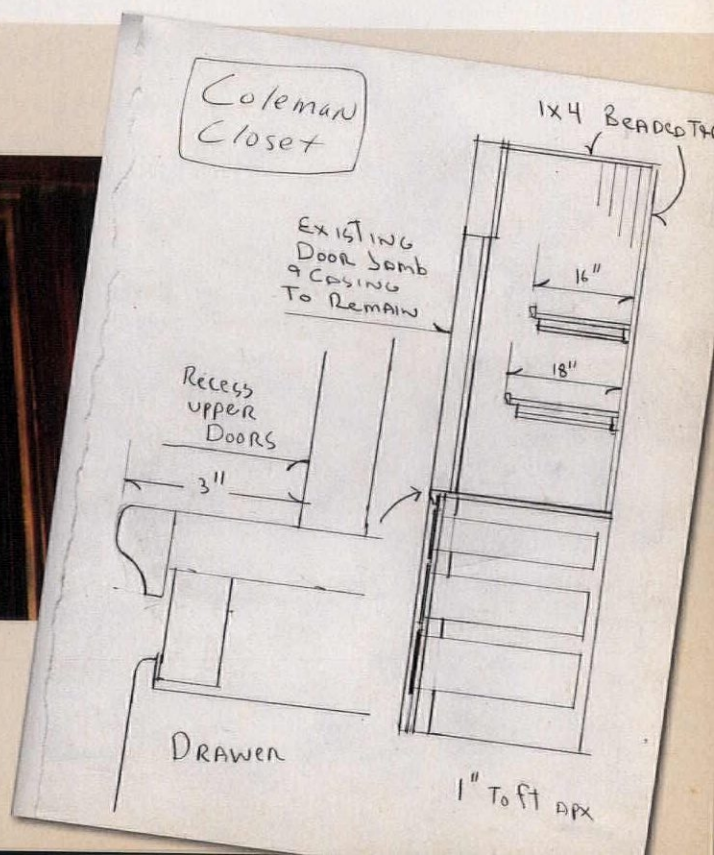 Coleman
Closet
1x4 BEADED T&G
EXISTING
Door Jamb
& Casing
To Remain
16"
18"
Recess
upper
Doors
3"
DRAWER
1" To ft APX